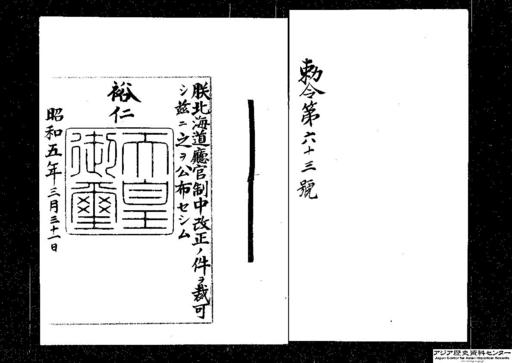 勅令第六十三號
朕北海道廳官制中改正ノ件ヲ裁可
シ茲ニ之ヲ公布セシム
裕仁
天皇
御璽
昭和五年三月三十一日
アジア歴史資料センター
Japan Center for Asian Historical Records